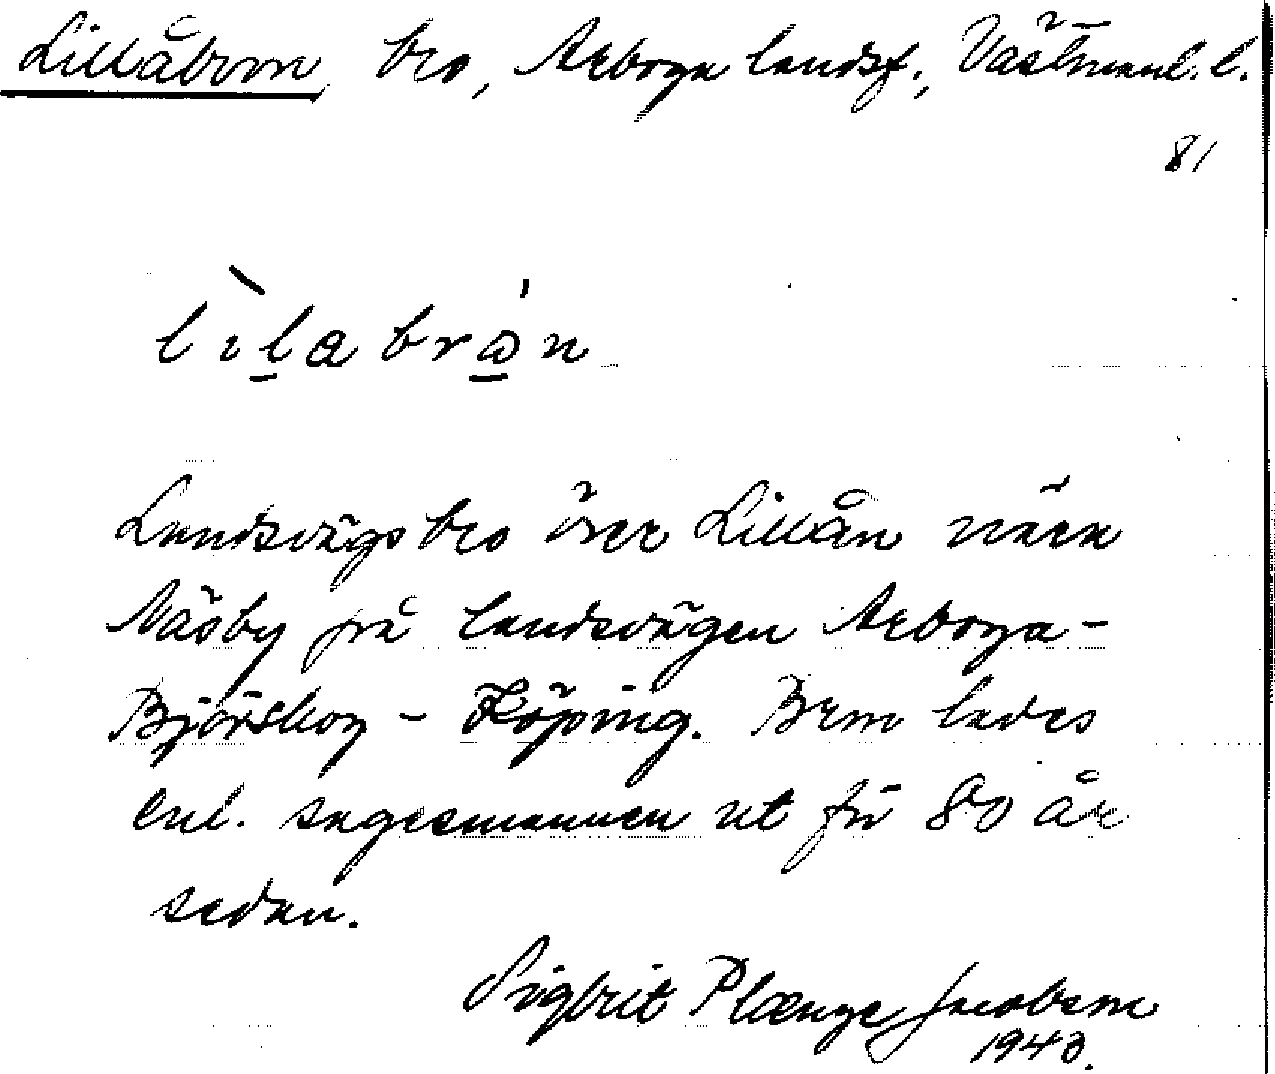 Lillåbron, bro, Arboga landsf., Västmanl. l.
81
lìlabrǻn
Landsvägsbro över Lillån nära
Näsby på landsvägen Arboga-
Björskog - Köping. Bron lades
enl. sagesmannen ut för 80 år
sedan.
Sigbrit Plænge Jacobson
1943.